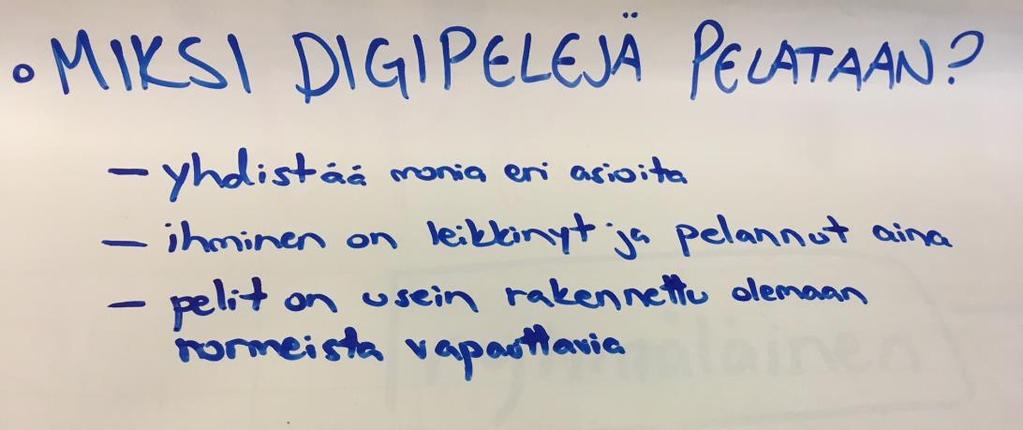 • MIKSI DIGIPELEJÄ PELATAAN?
– yhdistää monia eri asioita
– ihminen on leikkinyt ja pelannut aina
– pelit on usein rakennettu olemaan
normeista vapauttavia